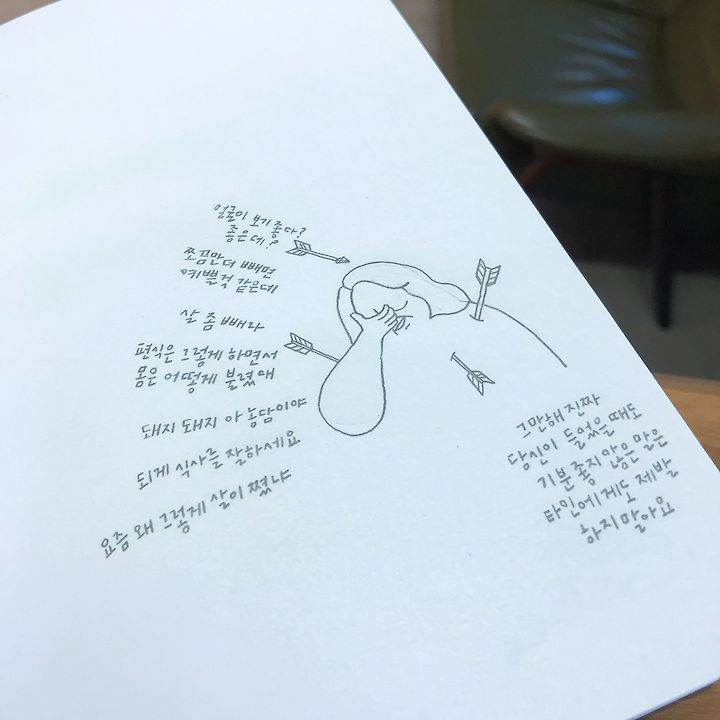 얼굴이 보기 좋다?
좋은데?
쪼끔만 더 빼면
예쁠것 같은데
살 좀 빼라
편식은 그렇게 하면서
몸은 어떻게 불렸대
돼지 돼지 아 농담이야
되게 식사를 잘하세요
요즘 왜 그렇게 살이 쪘냐
그만해 진짜
당신이 들었을 때도
기분 좋지 않은 말은
타인에게도 제발
하지말아요